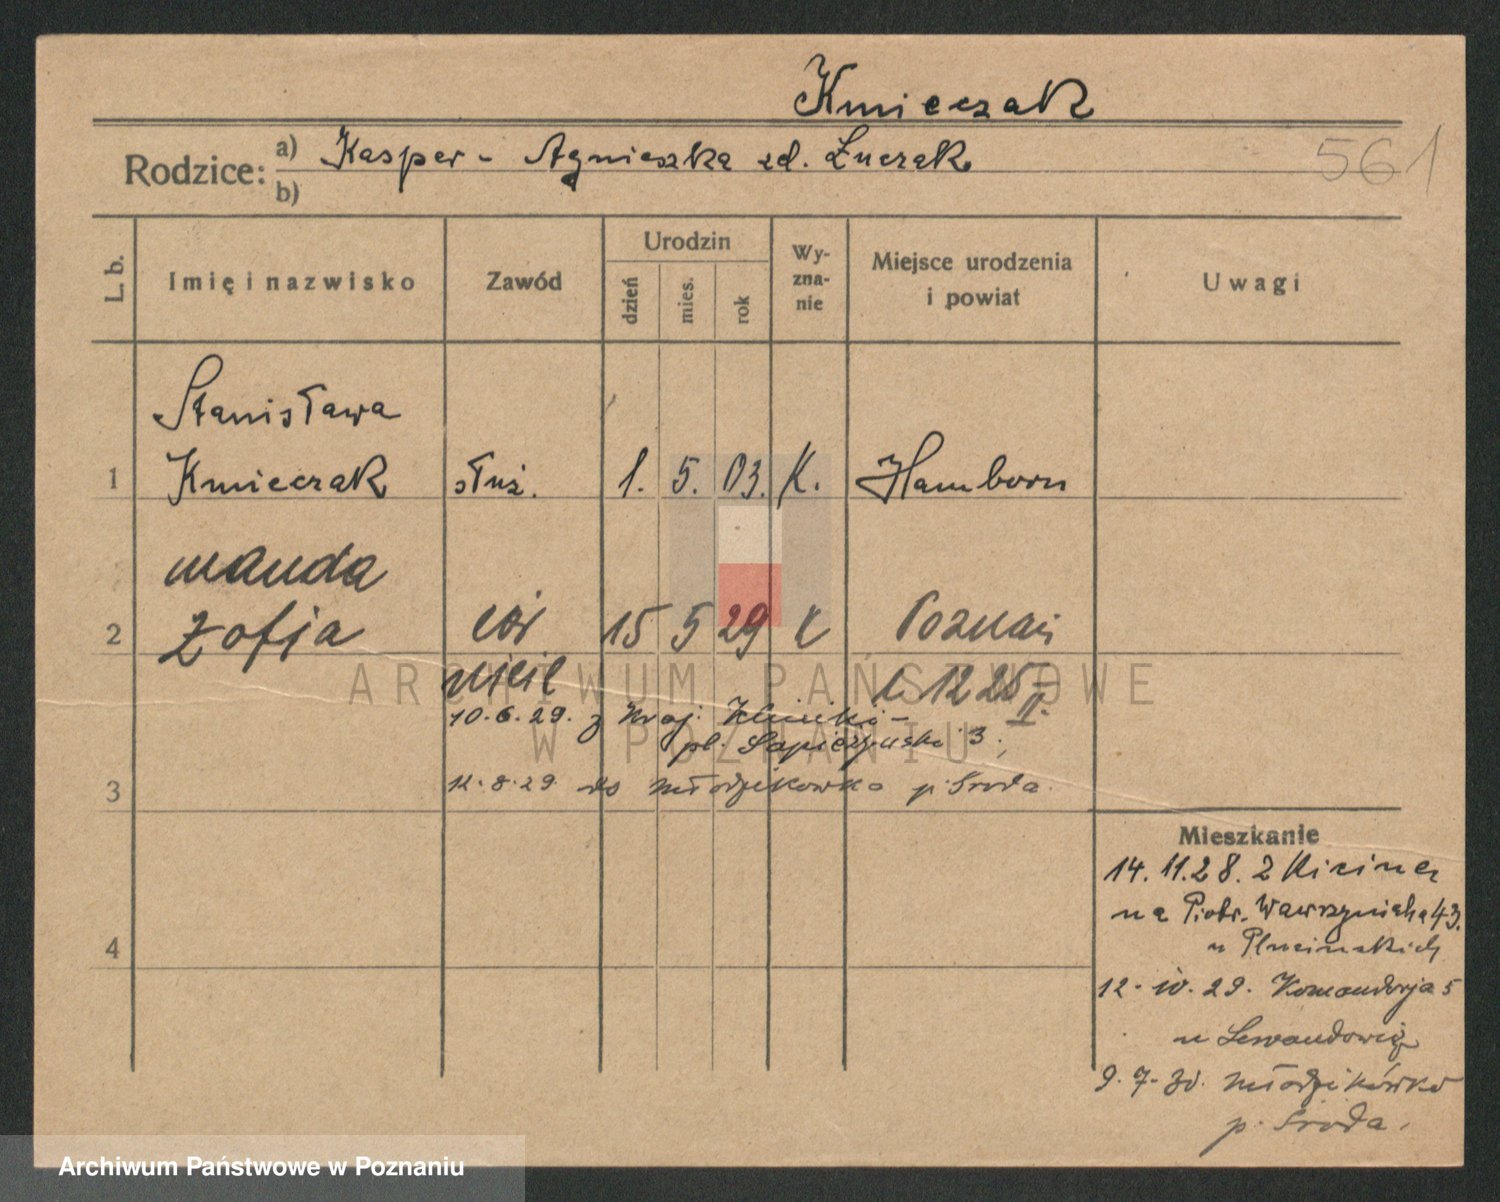 Kmieczak
Rodzice: a) Kasper - Agnieszka zd. Łuczak
b)
561
L. b.
Imię i nazwisko
Zawód
Urodzin
dzień
mies.
rok
Wy-
zna-
nie
Miejsce urodzenia
i powiat
Uwagi
Stanisława
1 Kmieczak służ. 1. 5. 03. K. Hamborn
Wanda
2 Zofja cór 15 5 29 K Poznań
nieśl L. 12 25 II.
10.6.29. z Kraj. Kliniki -
pl. Sapieżyński 3.
3 12.8.29 do Młodzikówko p. Środa.
4
Mieszkanie
14.11.28. z Kicina
na Piotr. Wawrzyniaka 43.
u Plucinskich
12.IV.29. Komandorja 5
u Lewandowicz
9.7.30. Młodzikówko
p. Środa.
ARCHIWUM PAŃSTWOWE
W POZNANIU
Archiwum Państwowe w Poznaniu